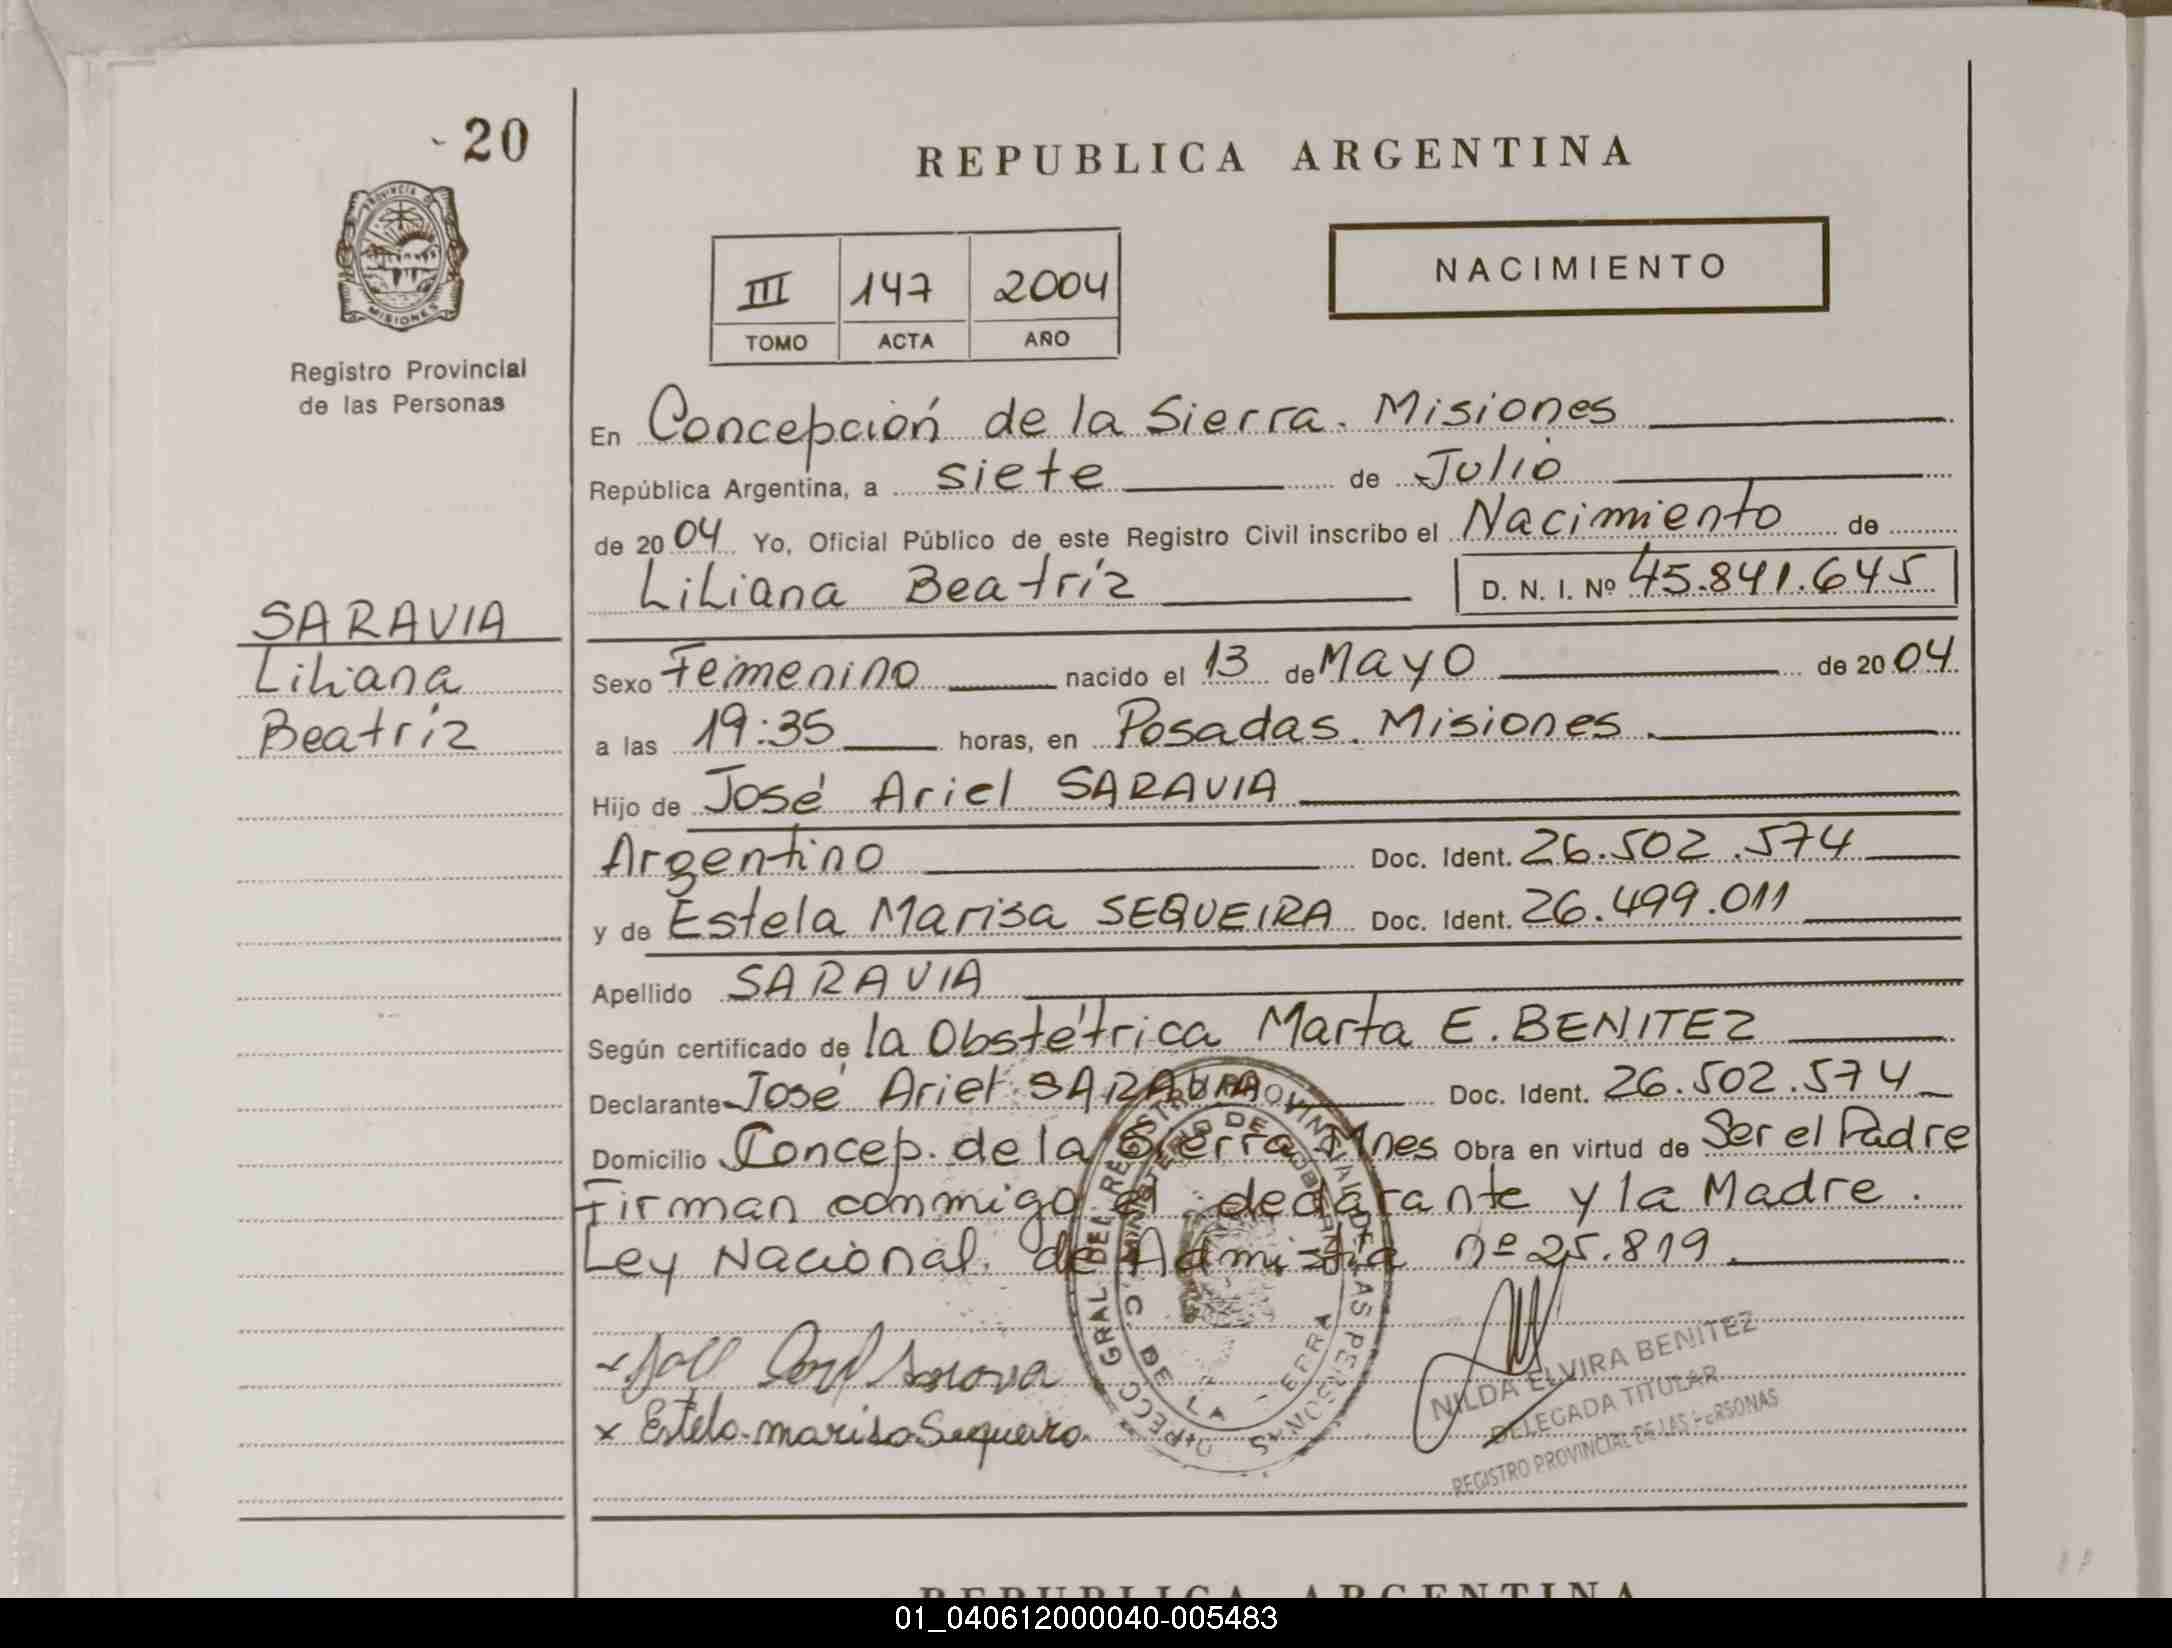 20
REPUBLICA ARGENTINA
PROVINCIA DE
MISIONES
Registro Provincial
de las Personas
III 147 2004
TOMO ACTA AÑO
NACIMIENTO
En Concepción de la Sierra. Misiones
República Argentina, a siete de Julio
de 2004 Yo, Oficial Público de este Registro Civil inscribo el Nacimiento de
Liliana Beatríz D. N. I. Nº 45.841.645
SARAVIA
Liliana
Beatríz
Sexo Femenino nacido el 13 de Mayo de 2004
a las 19:35 horas, en Posadas. Misiones.
Hijo de José Ariel SARAVIA
Argentino Doc. Ident. 26.502.574
y de Estela Marisa SEQUEIRA Doc. Ident. 26.499.011
Apellido SARAVIA
Según certificado de la Obstétrica Marta E. BENITEZ
Declarante José Ariel SARAVIA Doc. Ident. 26.502.574
Domicilio Concep. de la Sierra Mnes Obra en virtud de Ser el Padre
Firman conmigo el declarante y la Madre.
Ley Nacional de Admistia nº 25.819.
x Estela marisa Sequeira
NILDA ELVIRA BENITEZ
DELEGADA TITULAR
REGISTRO PROVINCIAL DE LAS PERSONAS
DIRECC GRAL DEL REGISTRO PROVINCIAL DE LAS PERSONAS
MINISTERIO DE GOBIERNO
C. DE LA SIERRA
REPUBLICA ARGENTINA
01_040612000040-005483